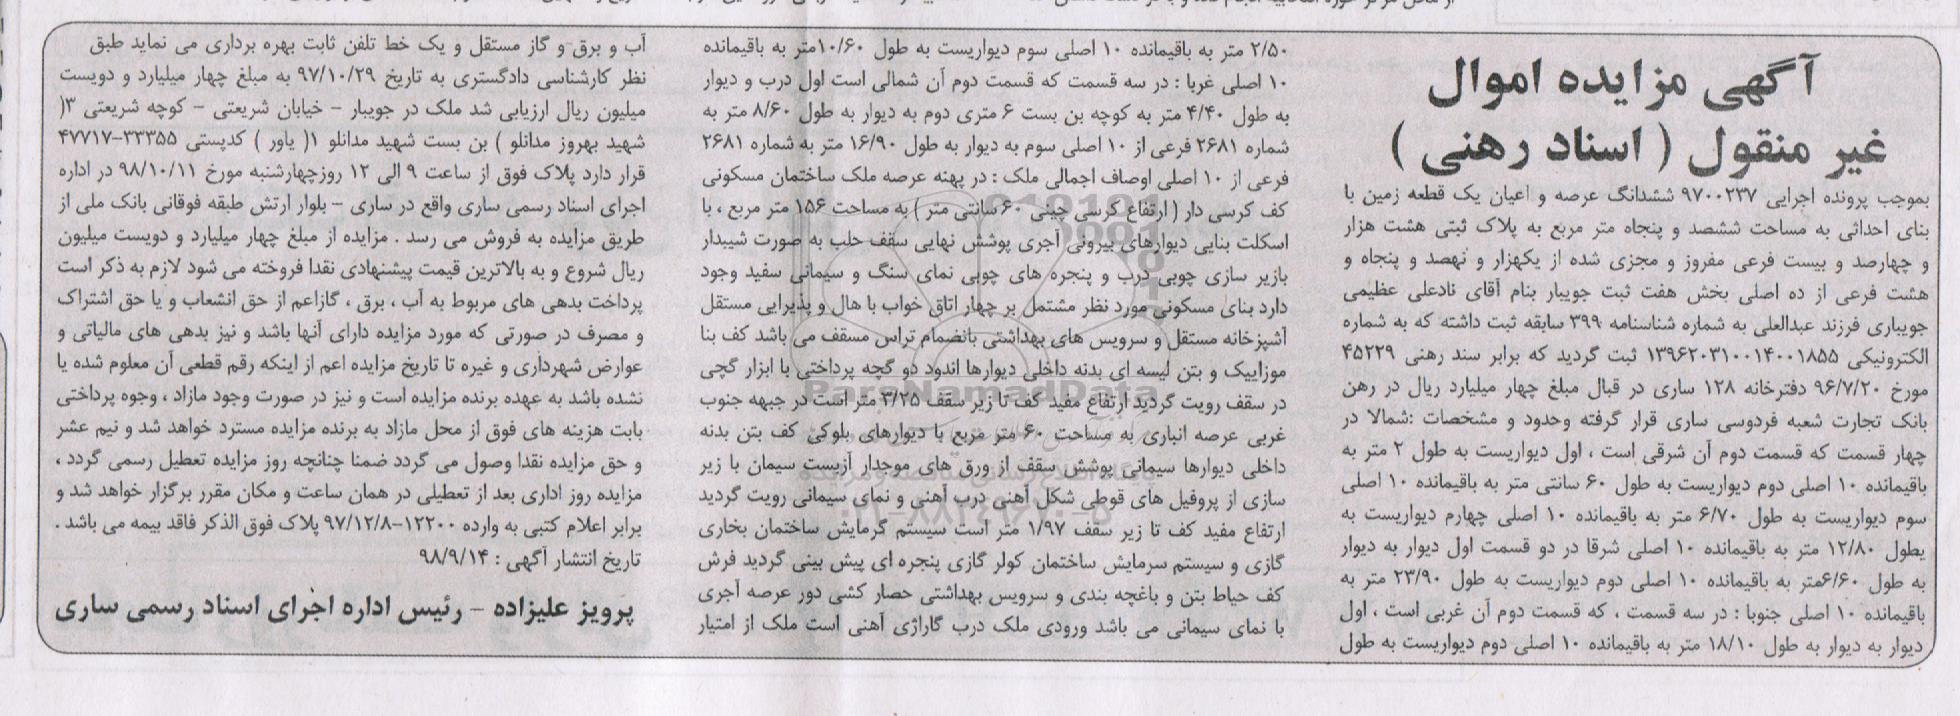 آگهی مزایده اموال
غیر منقول ( اسناد رهنی )
بموجب پرونده اجرایی ۹۷۰۰۲۳۷ ششدانگ عرصه و اعیان یک قطعه زمین با
بنای احداثی به مساحت ششصد و پنجاه متر مربع به پلاک ثبتی هشت هزار
و چهارصد و بیست فرعی مفروز و مجزی شده از یکهزار و نهصد و پنجاه و
هشت فرعی از ده اصلی بخش هفت ثبت جویبار بنام آقای نادعلی عظیمی
جویباری فرزند عبدالعلی به شماره شناسنامه ۳۹۹ سابقه ثبت داشته که به شماره
الکترونیکی ۱۳۹۶۲۰۳۱۰۰۱۴۰۰۱۸۵۵ ثبت گردید که برابر سند رهنی ۴۵۲۲۹
مورخ ۹۶/۷/۲۰ دفترخانه ۱۲۸ ساری در قبال مبلغ چهار میلیارد ریال در رهن
بانک تجارت شعبه فردوسی ساری قرار گرفته وحدود و مشخصات :شمالا در
چهار قسمت که قسمت دوم آن شرقی است ، اول دیواریست به طول ۲ متر به
باقیمانده ۱۰ اصلی دوم دیواریست به طول ۶۰ سانتی متر به باقیمانده ۱۰ اصلی
سوم دیواریست به طول ۶/۷۰ متر به باقیمانده ۱۰ اصلی چهارم دیواریست به
بطول ۱۲/۸۰ متر به باقیمانده ۱۰ اصلی شرقا در دو قسمت اول دیوار به دیوار
به طول ۶/۶۰متر به باقیمانده ۱۰ اصلی دوم دیواریست به طول ۲۳/۹۰ متر به
باقیمانده ۱۰ اصلی جنوبا : در سه قسمت ، که قسمت دوم آن غربی است ، اول
دیوار به دیوار به طول ۱۸/۱۰ متر به باقیمانده ۱۰ اصلی دوم دیواریست به طول
۲/۵۰ متر به باقیمانده ۱۰ اصلی سوم دیواریست به طول ۱۰/۶۰متر به باقیمانده
۱۰ اصلی غربا : در سه قسمت که قسمت دوم آن شمالی است اول درب و دیوار
به طول ۴/۴۰ متر به کوچه بن بست ۶ متری دوم به دیوار به طول ۸/۶۰ متر به
شماره ۲۶۸۱ فرعی از ۱۰ اصلی سوم به دیوار به طول ۱۶/۹۰ متر به شماره ۲۶۸۱
فرعی از ۱۰ اصلی اوصاف اجمالی ملک : در پهنه عرصه ملک ساختمان مسکونی
کف کرسی دار ( ارتفاع کرسی چینی ۶۰ سانتی متر ) به مساحت ۱۵۶ متر مربع ، با
اسکلت بنایی دیوارهای بیرونی آجری پوشش نهایی سقف حلب به صورت شیبدار
بازیر سازی چوبی درب و پنجره های چوبی نمای سنگ و سیمانی سفید وجود
دارد بنای مسکونی مورد نظر مشتمل بر چهار اتاق خواب با هال و پذیرایی مستقل
آشپزخانه مستقل و سرویس های بهداشتی بانضمام تراس مسقف می باشد کف بنا
موزاییک و بتن لیسه ای بدنه داخلی دیوارها اندود دو گچه پرداختی با ابزار گچی
در سقف رویت گردید ارتفاع مفید کف تا زیر سقف ۳/۲۵ متر است در جبهه جنوب
غربی عرصه انباری به مساحت ۶۰ متر مربع با دیوارهای بلوکی کف بتن بدنه
داخلی دیوارها سیمانی پوشش سقف از ورق های موجدار آزبست سیمان با زیر
سازی از پروفیل های قوطی شکل آهنی درب آهنی و نمای سیمانی رویت گردید
ارتفاع مفید کف تا زیر سقف ۱/۹۷ متر است سیستم گرمایش ساختمان بخاری
گازی و سیستم سرمایش ساختمان کولر گازی پنجره ای پیش بینی گردید فرش
کف حیاط بتن و باغچه بندی و سرویس بهداشتی حصار کشی دور عرصه آجری
با نمای سیمانی می باشد ورودی ملک درب گاراژی آهنی است ملک از امتیاز
آب و برق و گاز مستقل و یک خط تلفن ثابت بهره برداری می نماید طبق
نظر کارشناسی دادگستری به تاریخ ۹۷/۱۰/۲۹ به مبلغ چهار میلیارد و دویست
میلیون ریال ارزیابی شد ملک در جویبار – خیابان شریعتی – کوچه شریعتی ۳(
شهید بهروز مدانلو ) بن بست شهید مدانلو ۱( یاور ) کدپستی ۳۳۳۵۵–۴۷۷۱۷
قرار دارد پلاک فوق از ساعت ۹ الی ۱۲ روزچهارشنبه مورخ ۹۸/۱۰/۱۱ در اداره
اجرای اسناد رسمی ساری واقع در ساری – بلوار ارتش طبقه فوقانی بانک ملی از
طریق مزایده به فروش می رسد . مزایده از مبلغ چهار میلیارد و دویست میلیون
ریال شروع و به بالاترین قیمت پیشنهادی نقدا فروخته می شود لازم به ذکر است
پرداخت بدهی های مربوط به آب ، برق ، گازاعم از حق انشعاب و یا حق اشتراک
و مصرف در صورتی که مورد مزایده دارای آنها باشد و نیز بدهی های مالیاتی و
عوارض شهرداری و غیره تا تاریخ مزایده اعم از اینکه رقم قطعی آن معلوم شده یا
نشده باشد به عهده برنده مزایده است و نیز در صورت وجود مازاد ، وجوه پرداختی
بابت هزینه های فوق از محل مازاد به برنده مزایده مسترد خواهد شد و نیم عشر
و حق مزایده نقدا وصول می گردد ضمنا چنانچه روز مزایده تعطیل رسمی گردد ،
مزایده روز اداری بعد از تعطیلی در همان ساعت و مکان مقرر برگزار خواهد شد و
برابر اعلام کتبی به وارده ۱۲۲۰۰–۹۷/۱۲/۸ پلاک فوق الذکر فاقد بیمه می باشد .
تاریخ انتشار آگهی : ۹۸/۹/۱۴
پرویز علیزاده – رئیس اداره اجرای اسناد رسمی ساری
ParsNamadData